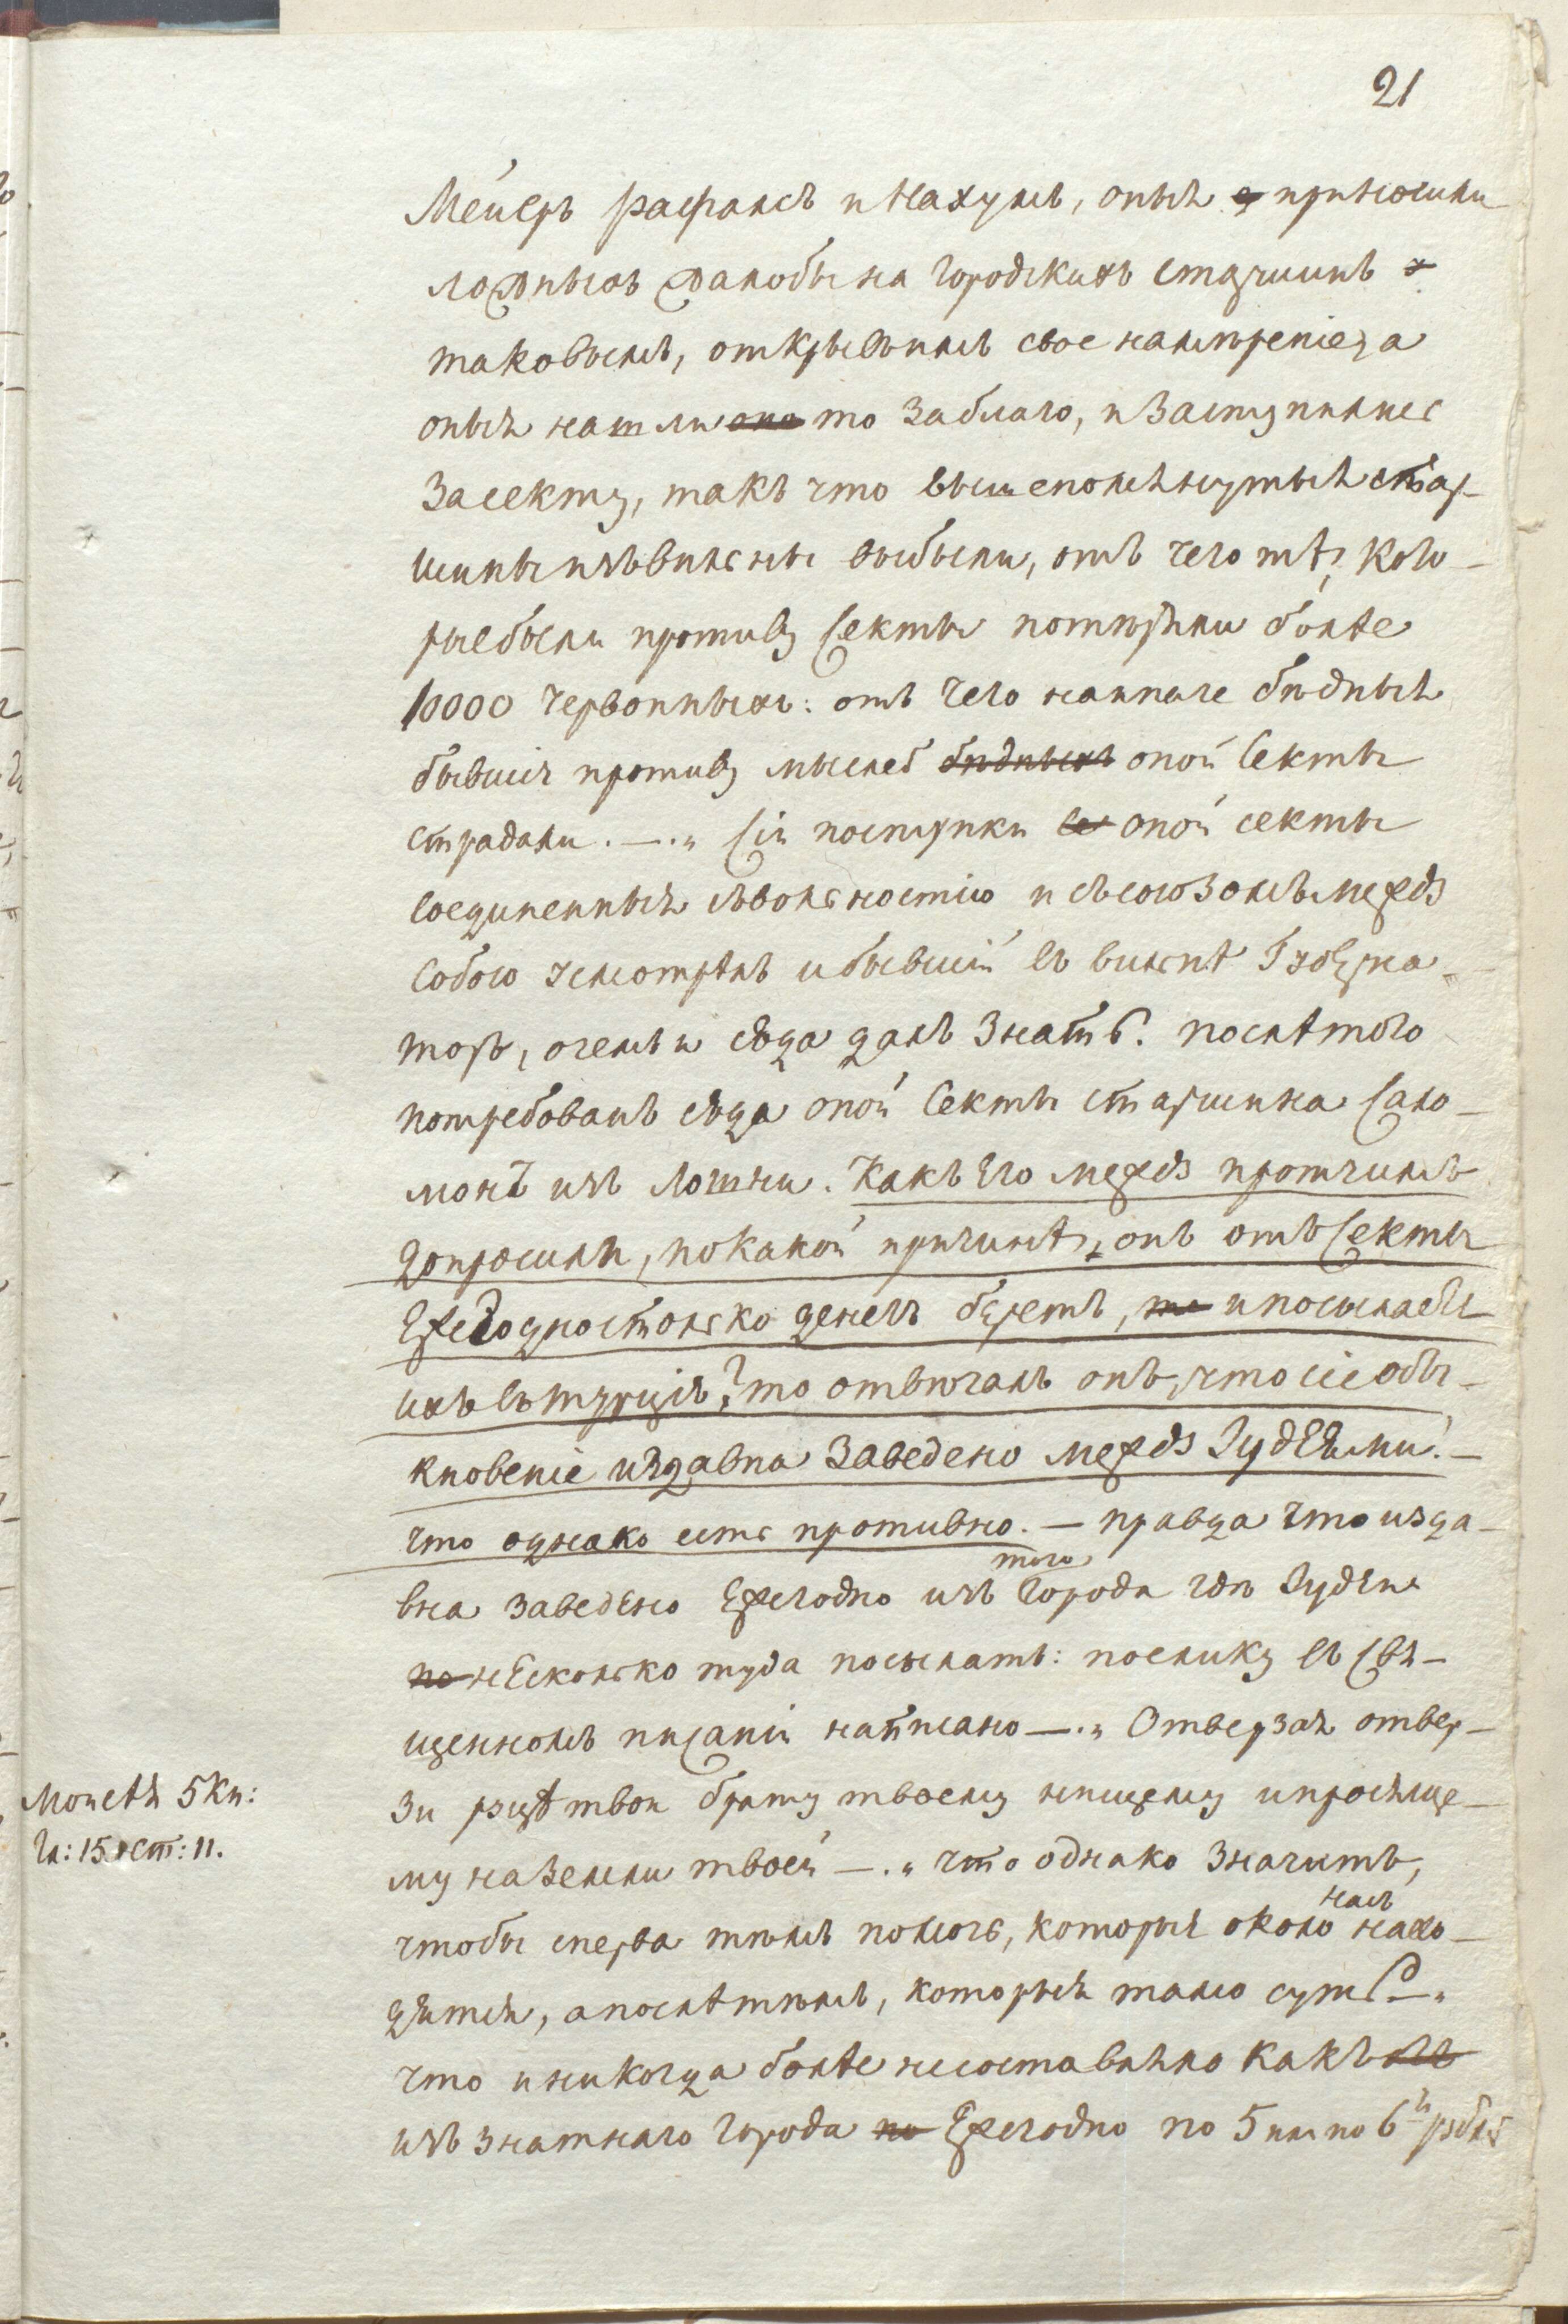 21
Меиеръ рафалъ и Нахумъ, оныя приносили
ложныхъ жалобы на Городскихъ старшинъ
таковымъ, открывъимъ свое намѣреніе, а
оныя нашли оно то заблаго, и Заступились
За секту, такъ что вышепомянутыя стар-
шины изъ вильны выбыли, отъ чего тѣ, кото-
рые были противу Секты потеряли болѣе
10000 Червонныхъ: отъ Чего наипаче бѣдныя
бывшія противу мыслеб бѣдныхъ оной Секты
страдали. —. „ Сіи поступки се оной секты
соединенныя съвольностію и съсоюзомъ между
Собою усмотрѣлъ и бывшій въ вильнѣ Губерна=
торъ, очемъ и сюда далъ Знать. послѣ того
потребованъ сюда оной Секты старшина Сало-
монъ изъ Лошни. Какъ Его между протчимъ
допросили, по какой причинѣ, онъ отъ Секты
Ежегодно столько денегъ беретъ, то и посылаетъ
ихъ въ турцію? то отвѣчалъ онъ, что сіе обы-
кновеніе издавна Заведено между Іудеями. —
что однако есть противно. — правда что изда-
вна заведено Ежегодно изъ того Города гдѣ Іудеи
по нѣсколько туда посылать: поелику въ Свя-
щенномъ писаніи написано —. „ Отверзая отвер-
Моисея 5 Кн:
Гл: 15 Ст: 11.
зи руцѣ твои брату твоему нищему и просяще-
му на Земли твоей —. „ что однако Значитъ,
чтобы сперва тѣмъ помочь, которыя около насъ нахо-
дятся, а послѣ тѣмъ, которыя тамо суть —. „
что и никогда болѣе несоставляло какъ
изъ знатнаго Города по Ежегодно по 5 или по 6 и рубля